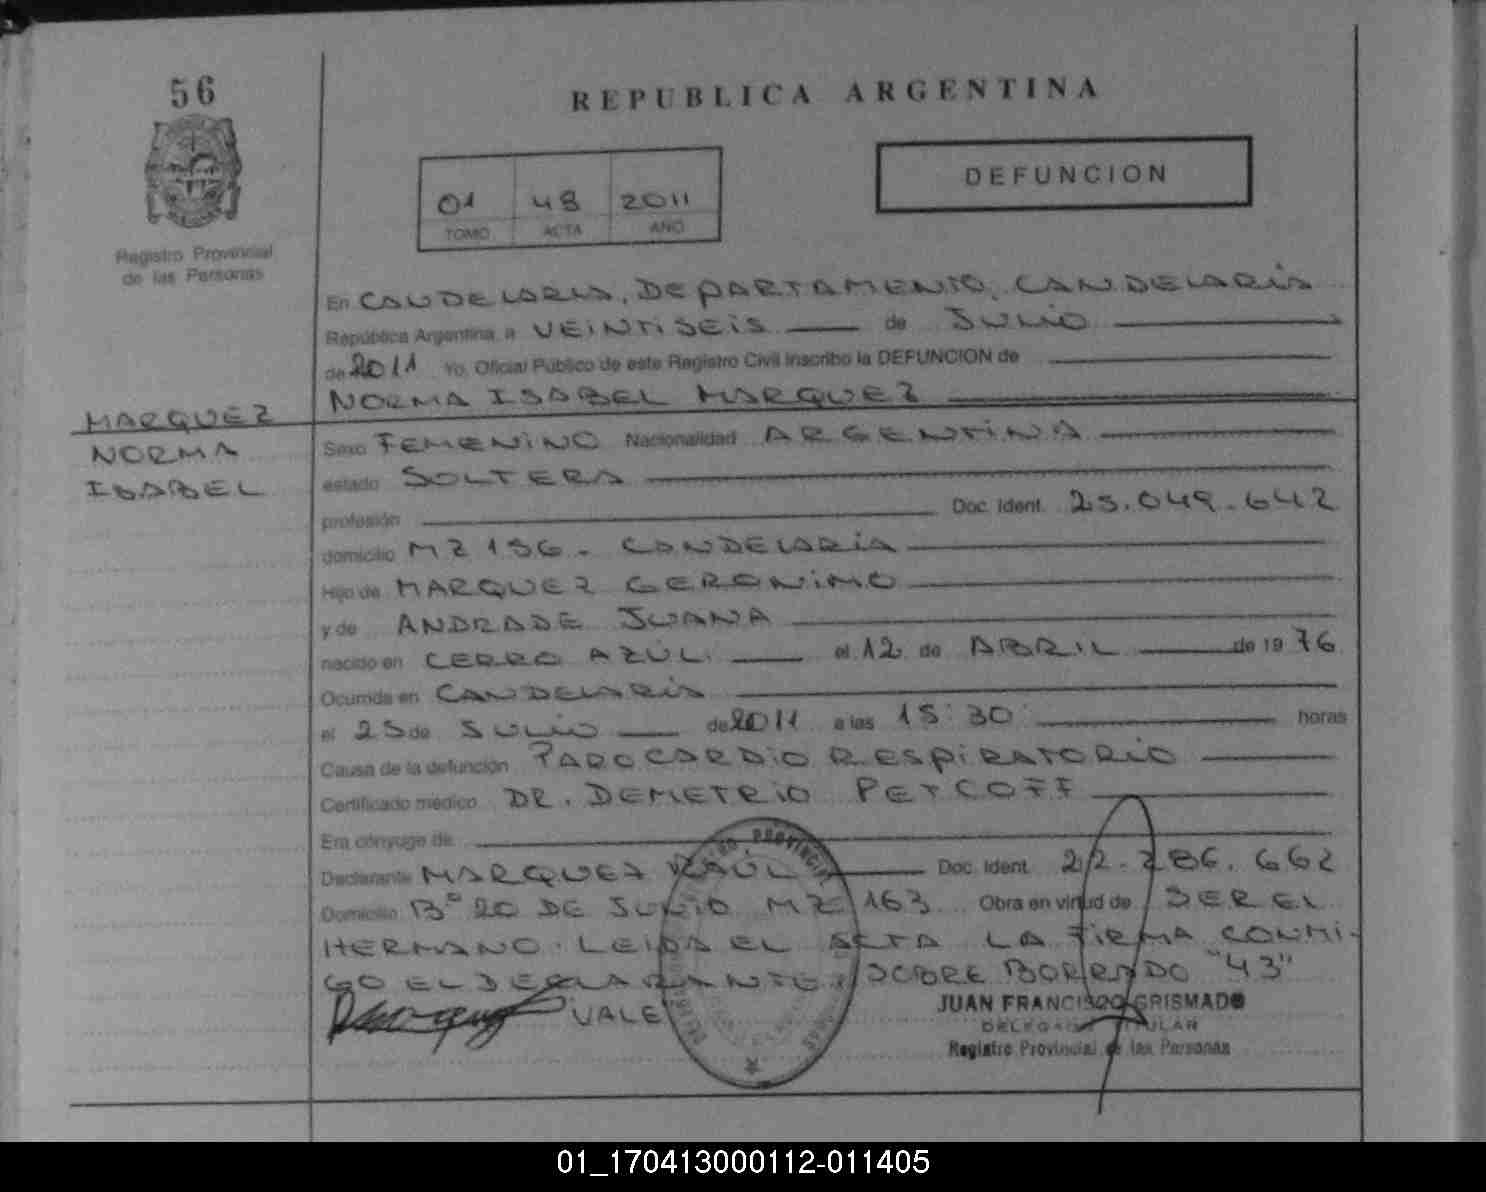 56
REPUBLICA ARGENTINA
DEFUNCION
01 48 2011
TOMO ACTA AÑO
Registro Provincial
de las Personas
En CANDELARIA, DEPARTAMENTO, CANDELARIA
República Argentina, a VEINTISEIS de JULIO
de 2011 Yo, Oficial Público de este Registro Civil inscribo la DEFUNCION de
NORMA ISABEL MARQUEZ
MARQUEZ
NORMA
ISABEL
Sexo FEMENINO Nacionalidad ARGENTINA
estado SOLTERA
profesión Doc. Ident. 25.049.642
domicilio MZ 196 - CANDELARIA
Hijo de MARQUEZ GERONIMO
y de ANDRADE JUANA
nacido en CERRO AZÚL. el 12 de ABRIL de 19 76
Ocurrida en CANDELARIA
el 25 de JULIO de 2011 a las 15:30 horas
Causa de la defunción PAROCARDIO RESPIRATORIO
Certificado médico DR. DEMETRIO PETCOFF
Era cónyuge de
Declarante MARQUEZ RAÚL Doc. Ident. 22.286.662
Domicilio B° 20 DE JULIO MZ 163 Obra en virtud de SER EL
HERMANO. LEIDA EL ACTA LA FIRMA CONMI-
GO EL DECLARANTE. SOBRE BORRADO "43"
VALE
JUAN FRANCISCO GRISMADO
DELEGADO TITULAR
Registro Provincial de las Personas
01_170413000112-011405